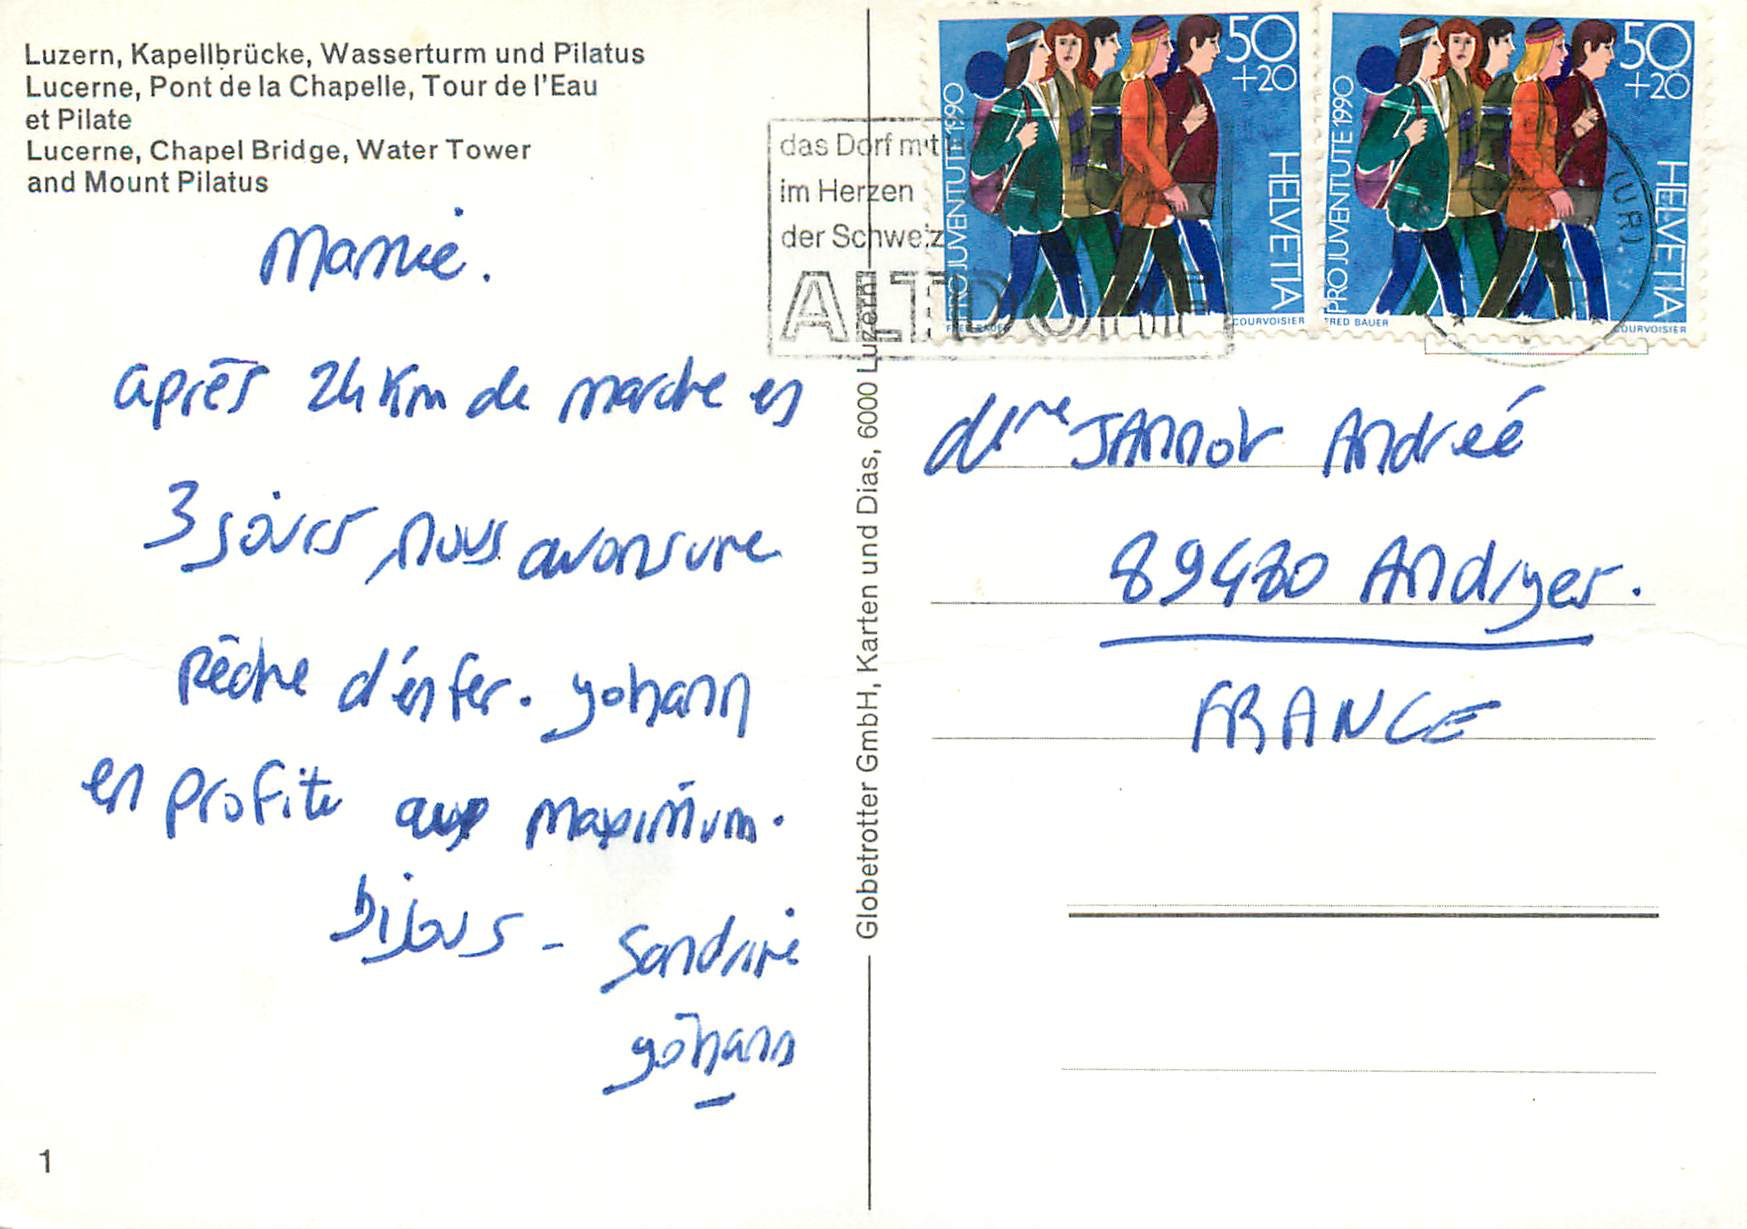 Luzern, Kapellbrücke, Wasserturm und Pilatus
Lucerne, Pont de la Chapelle, Tour de l'Eau
et Pilate
Lucerne, Chapel Bridge, Water Tower
and Mount Pilatus
Mamie.
après 24 Km de marche en
3 jours, nous avons une
pêche d'énfer. yohann
en profite au maximum.
bijous - Sandrine
yohann
1
Globetrotter GmbH, Karten und Dias, 6000 Luzern
das Dorf mit
im Herzen
der Schweiz
ALTDORF
PRO JUVENTUTE 1990
50
+20
HELVETIA
FRED BAUER
COURVOISIER
PRO JUVENTUTE 1990
50
+20
HELVETIA
FRED BAUER
COURVOISIER
(UR)
JAnnot Andreé
89480 Andryes.
FRANCE